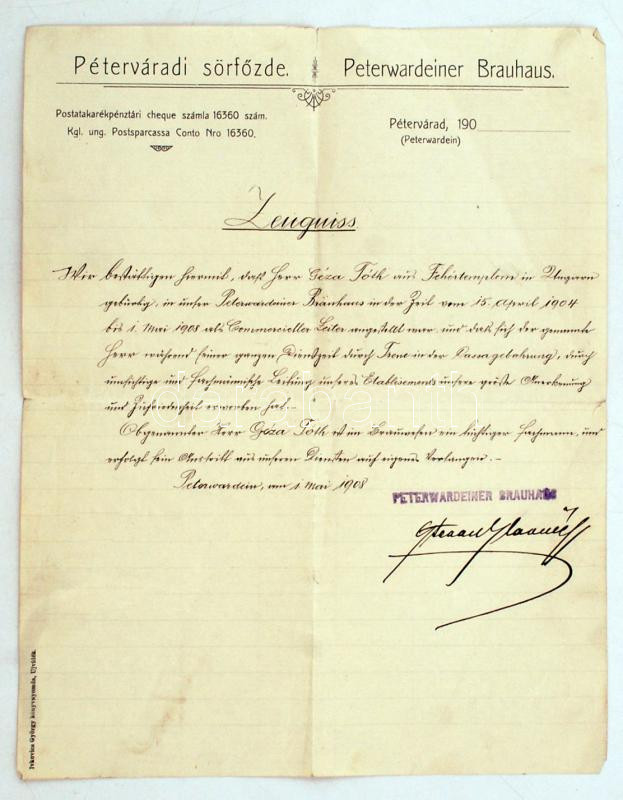 Péterváradi sörfőzde.
Peterwardeiner Brauhaus.
Postatakarékpénztári cheque számla 16360 szám.
Kgl. ung. Postsparcassa Conto Nro 16360.
Pétervárad, 190
(Peterwardein)
Zeugniss
Wir bestättigen hiermit, daß Herr Géza Tóth aus Fehértemplom in Ungarn
gebürtig, in unser Peterwardeiner Bräuhaus in der Zeit vom 15. April 1904
bis 1. Mai 1908 als Commercieller Leiter angestellt war, und daß sich der genannte
Herr während seiner ganzen Dienstzeit durch Treue in der Kassagebahrung, durch
umsichtige und fachmännische Leitung unseres Etablisements unsere größte Anerkennung
und Zufriedenheit erworben hat.-
Obgenannter Herr Géza Tóth ist im Brauwesen ein tüchtiger Fachmann, und
erfolgt sein Austritt aus unseren Diensten auf eigenes Verlangen.-
Peterwardein, am 1. Mai 1908
PETERWARDEINER BRAUHAUS
Ivkovics György könyvnyomda, Ujvidék.